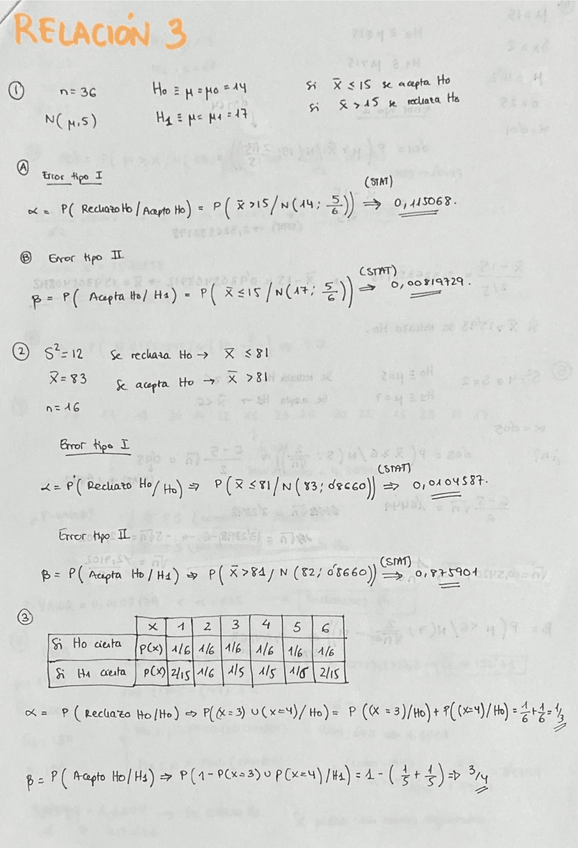 RELACIÓN 3
① n = 36 H₀ ≡ μ = μ₀ = 14 Si x̄ ≤ 15 se acepta H₀
N(μ, 5) H₁ ≡ μ = μ₁ = 17 si x̄ > 15 se rechaza H₀
Ⓐ Error tipo I
α = P( Rechazo H₀ / Acepto H₀ ) = P( x̄ > 15 / N(14; 5/6)) (STAT) ⇒ 0,115068.
Ⓑ Error tipo II
β = P( Acepta H₀ / H₁ ) = P( x̄ ≤ 15 / N(17; 5/6)) (STAT) ⇒ 0,00819729.
② S² = 12 Se rechaza H₀ → x̄ ≤ 81
x̄ = 83 Se acepta H₀ → x̄ > 81
n = 16
Error tipo I
α = P( Rechazo H₀ / H₀ ) ⇒ P( x̄ ≤ 81 / N(83; 0'8660)) (STAT) ⇒ 0,0104587.
Error tipo II
β = P( Acepta H₀ / H₁ ) ⇒ P( x̄ > 81 / N(82; 0'8660)) (STAT) ⇒ 0,875901
③
X 1 2 3 4 5 6
Si H₀ cierta P(x) 1/6 1/6 1/6 1/6 1/6 1/6
Si H₁ cierta P(x) 2/15 1/6 1/5 1/5 1/6 2/15
α = P( Rechazo H₀ / H₀ ) ⇒ P((x=3) ∪ (x=4) / H₀) = P((x=3) / H₀) + P((x=4) / H₀) = 1/6 + 1/6 = 1/3
β = P( Acepto H₀ / H₁ ) ⇒ P(1 - P(x=3) ∪ P(x=4) / H₁) = 1 - (1/5 + 1/5) ⇒ 3/4